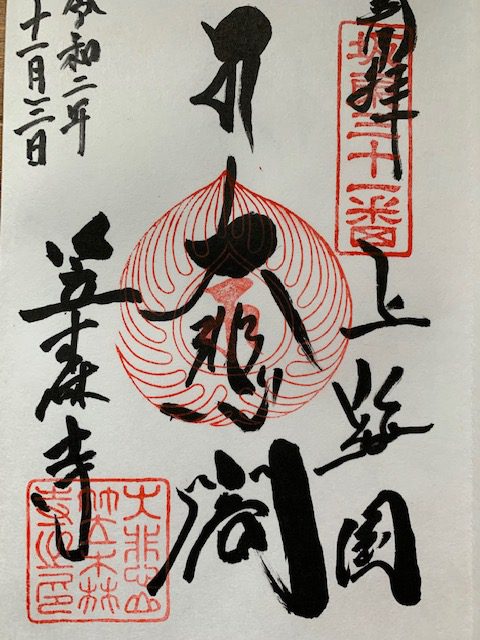 奉拝
坂東三十一番
上総国
大悲閣
笠森寺
令和二年
十一月三日
大悲山
笠森
寺之印